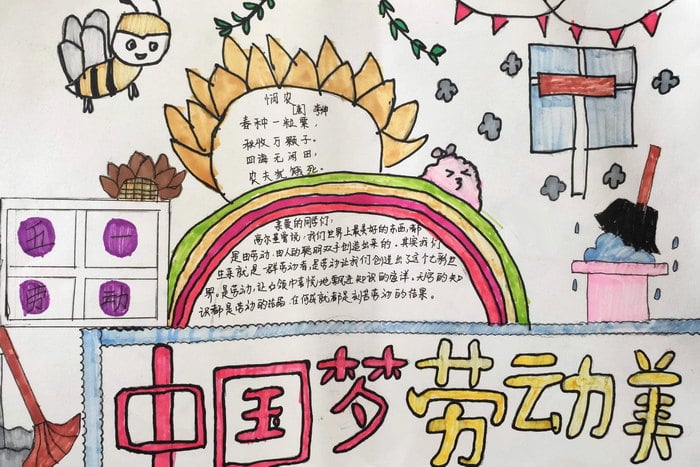 悯农
[唐] 李绅
春种一粒粟,
秋收万颗子。
四海无闲田,
农夫犹饿死。
亲爱的同学们:
高尔基曾说,我们世界上最美好的东西,都
是由劳动、由人的聪明双手创造出来的,其实我们
生来就是一群劳动者,是劳动让我们创造出了这个七彩世
界。是劳动,让
地飘进知识的海洋。无穷的知
识都是劳动的结晶,任何成就都是刻苦劳动的结果。
五 一
劳 动
中国梦劳动美